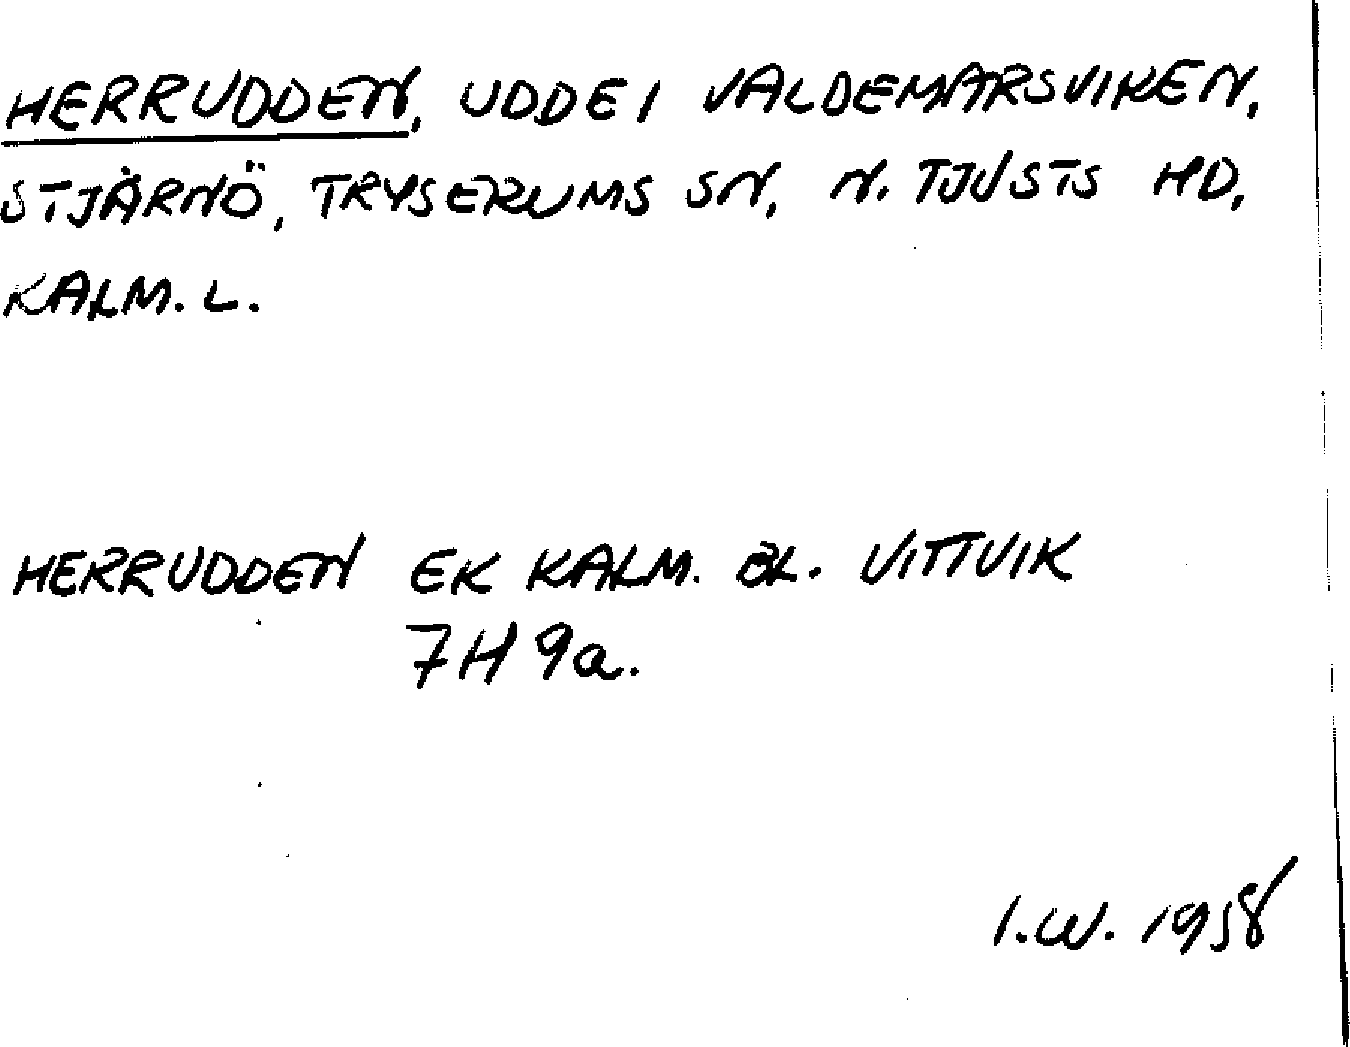 HERRUDDEN, UDDE I VALDEMARSVIKEN,
STJÄRNÖ, TRYSERUMS SN, N. TJUSTS HD,
KALM. L.
HERRUDDEN EK KALM. BL. VITTVIK
7H 9a.
I.W. 1958